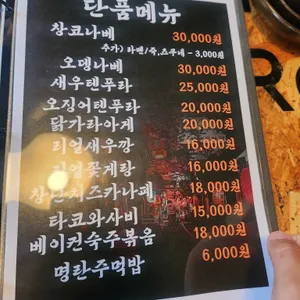 단품메뉴
창코나베 30,000원
추가) 라멘/죽, 쯔유네 - 3,000원
오뎅나베 30,000원
새우텐푸라 25,000원
오징어텐푸라 20,000원
닭가라아게 20,000원
리얼새우깡 16,000원
리얼꽃게탕 16,000원
창난치즈카나페 18,000원
타코와사비 15,000원
베이컨숙주볶음 18,000원
명란주먹밥 6,000원